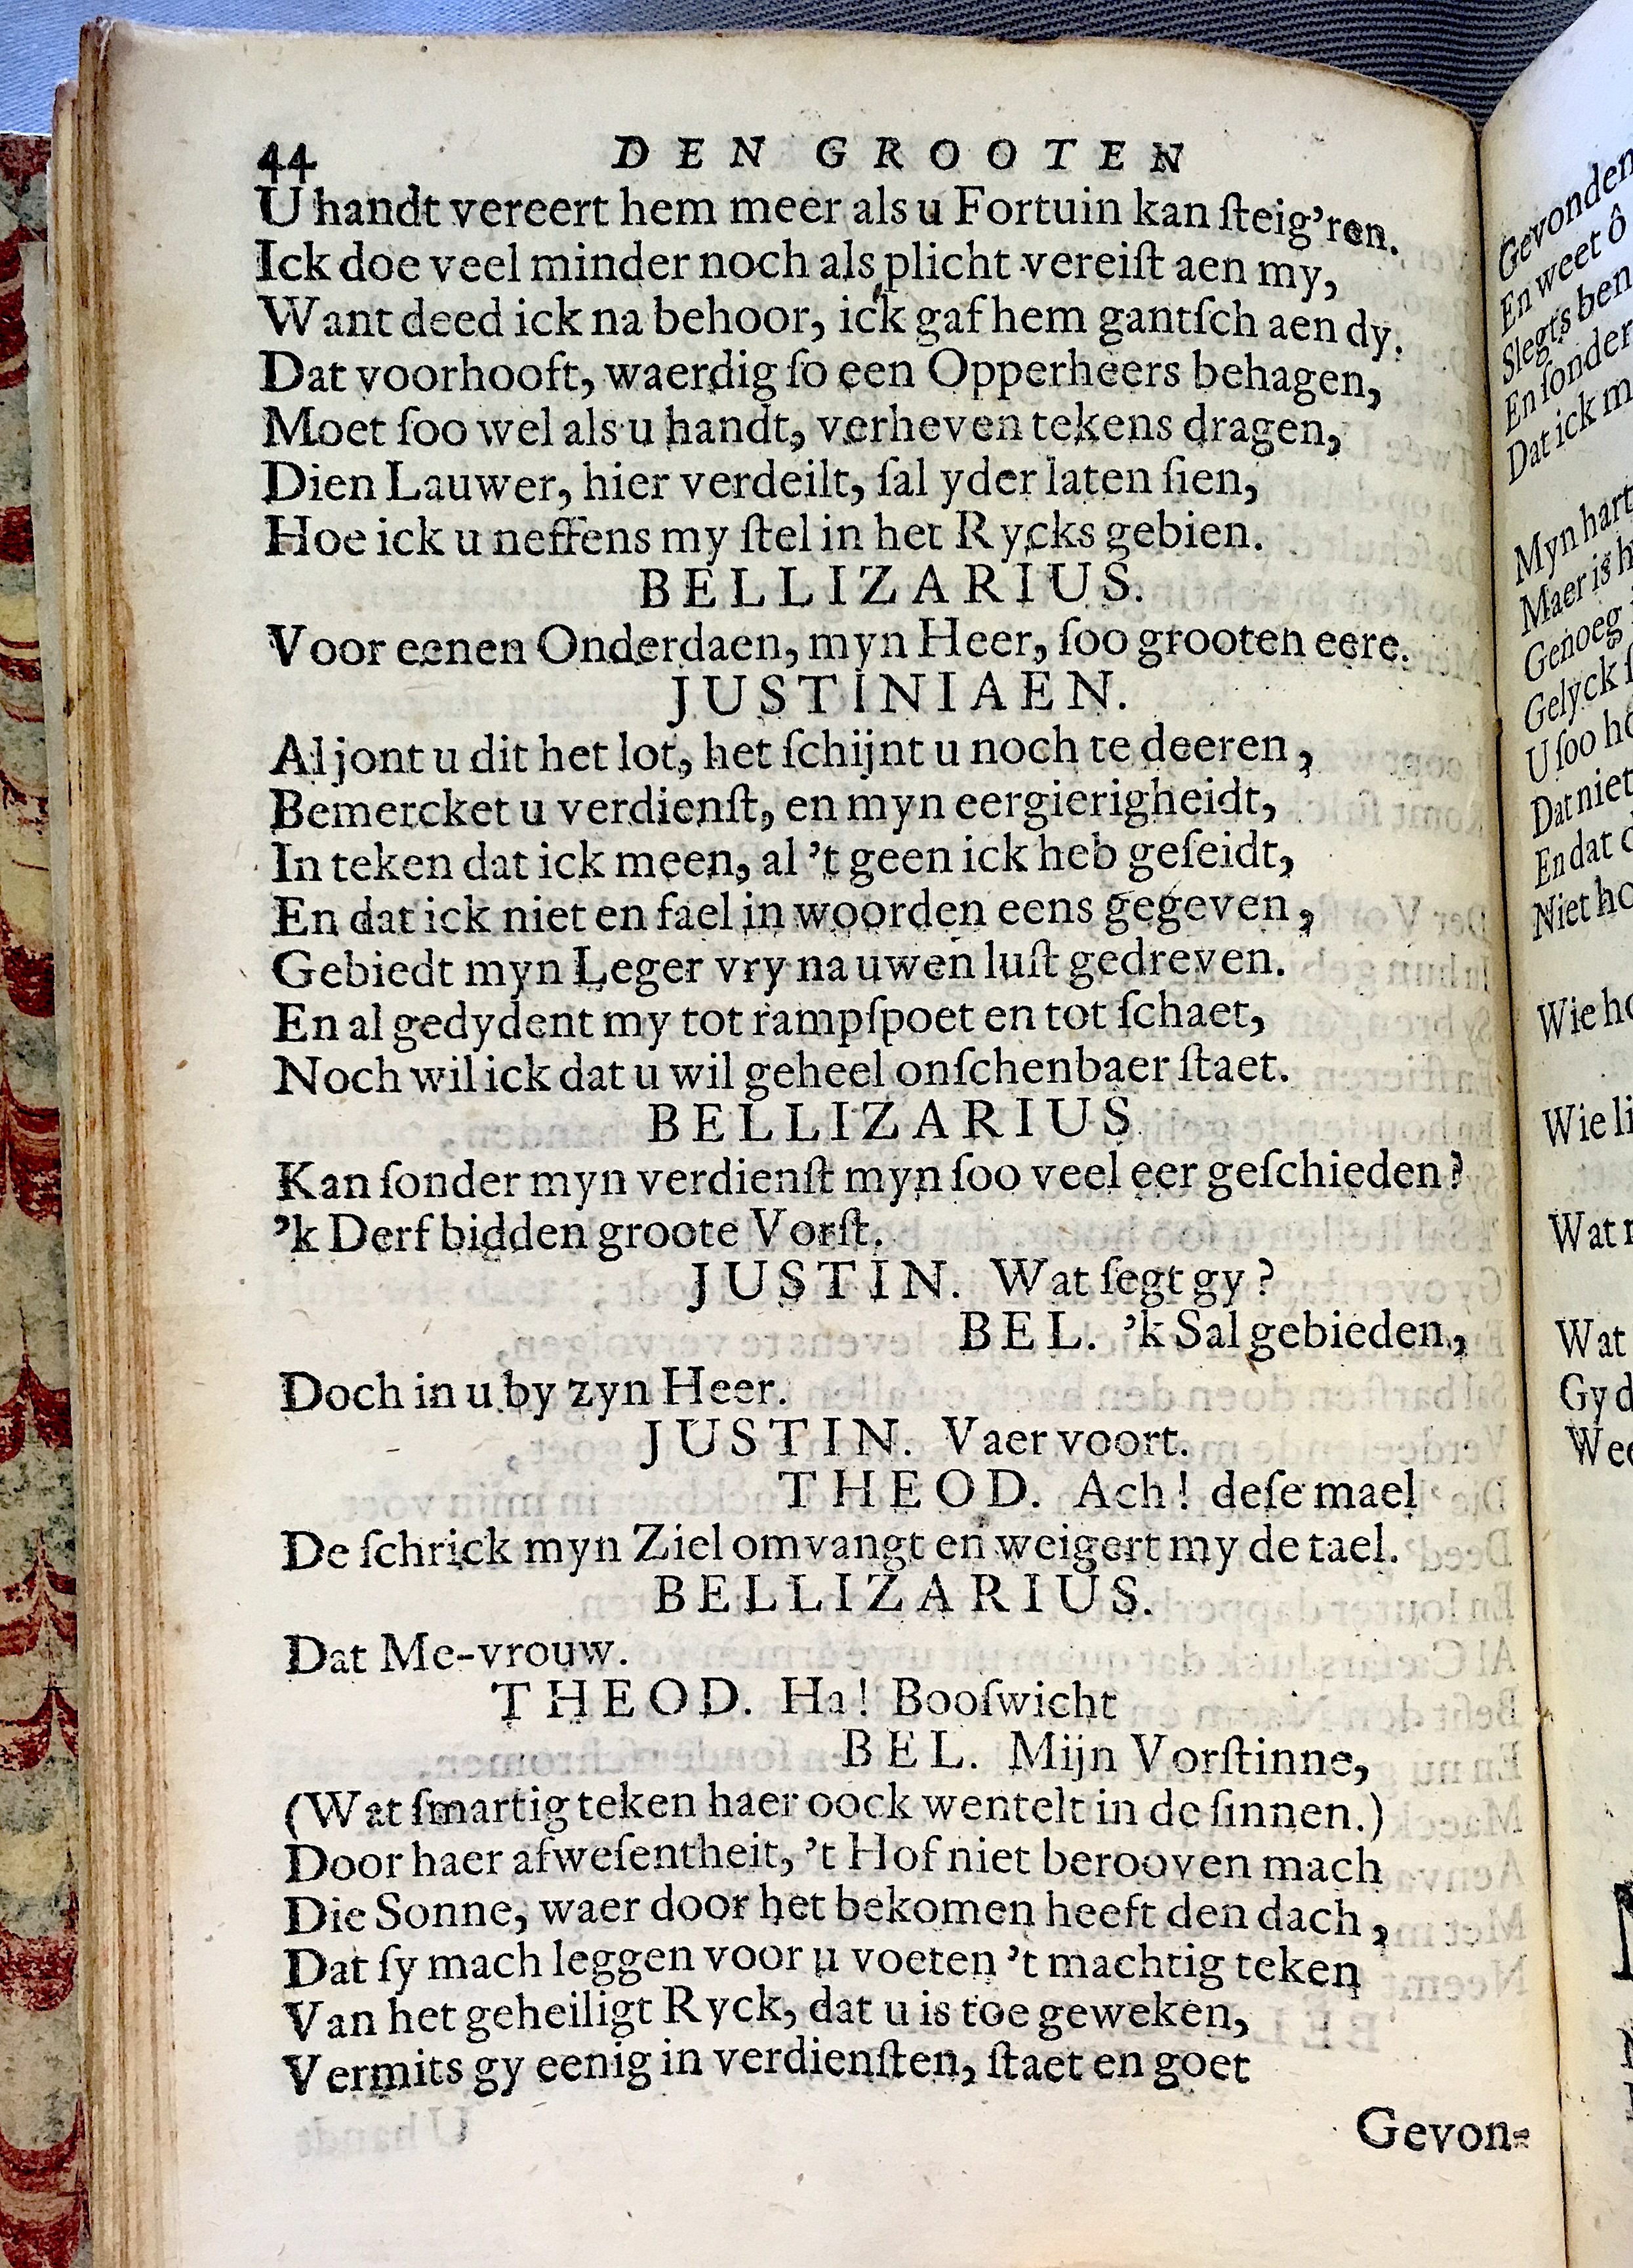 44 DEN GROOTEN
U handt vereert hem meer als u Fortuin kan ſteig'ren.
Ick doe veel minder noch als plicht vereiſt aen my,
Want deed ick na behoor, ick gaf hem gantſch aen dy.
Dat voorhooft, waerdig ſo een Opperheers behagen,
Moet ſoo wel als u handt, verheven tekens dragen,
Dien Lauwer, hier verdeilt, ſal yder laten ſien,
Hoe ick u neffens my ſtel in het Rycks gebien.
BELLIZARIUS.
Voor eenen Onderdaen, myn Heer, ſoo grooten eere.
JUSTINIAEN.
Al jont u dit het lot, het ſchijnt u noch te deeren,
Bemercket u verdienſt, en myn eergierigheidt,
In teken dat ick meen, al 't geen ick heb geſeidt,
En dat ick niet en fael in woorden eens gegeven,
Gebiedt myn Leger vry na uwen luſt gedreven.
En al gedydent my tot rampſpoet en tot ſchaet,
Noch wil ick dat u wil geheel onſchenbaer ſtaet.
BELLIZARIUS
Kan ſonder myn verdienſt myn ſoo veel eer geſchieden?
'k Derf bidden groote Vorſt.
JUSTIN. Wat ſegt gy?
BEL. 'k Sal gebieden,
Doch in u by zyn Heer.
JUSTIN. Vaer voort.
THEOD. Ach! deſe mael
De ſchrick myn Ziel omvangt en weigert my de tael.
BELLIZARIUS.
Dat Me-vrouw.
THEOD. Ha! Booſwicht
BEL. Mijn Vorſtinne,
(Wat ſmartig teken haer oock wentelt in de ſinnen.)
Door haer afweſentheit, 't Hof niet berooven mach
Die Sonne, waer door het bekomen heeft den dach,
Dat ſy mach leggen voor u voeten 't machtig teken
Van het geheiligt Ryck, dat u is toe geweken,
Vermits gy eenig in verdienſten, ſtaet en goet
Gevon-
Gevonden
En weet ô
Slegts ben
En ſonder
Dat ick m
Myn hart
Maer is h
Genoeg
Gelyck ſ
U ſoo ho
Dat niet
En dat d
Niet ho
Wie ho
Wie li
Wat
Wat
Gy d
Wee